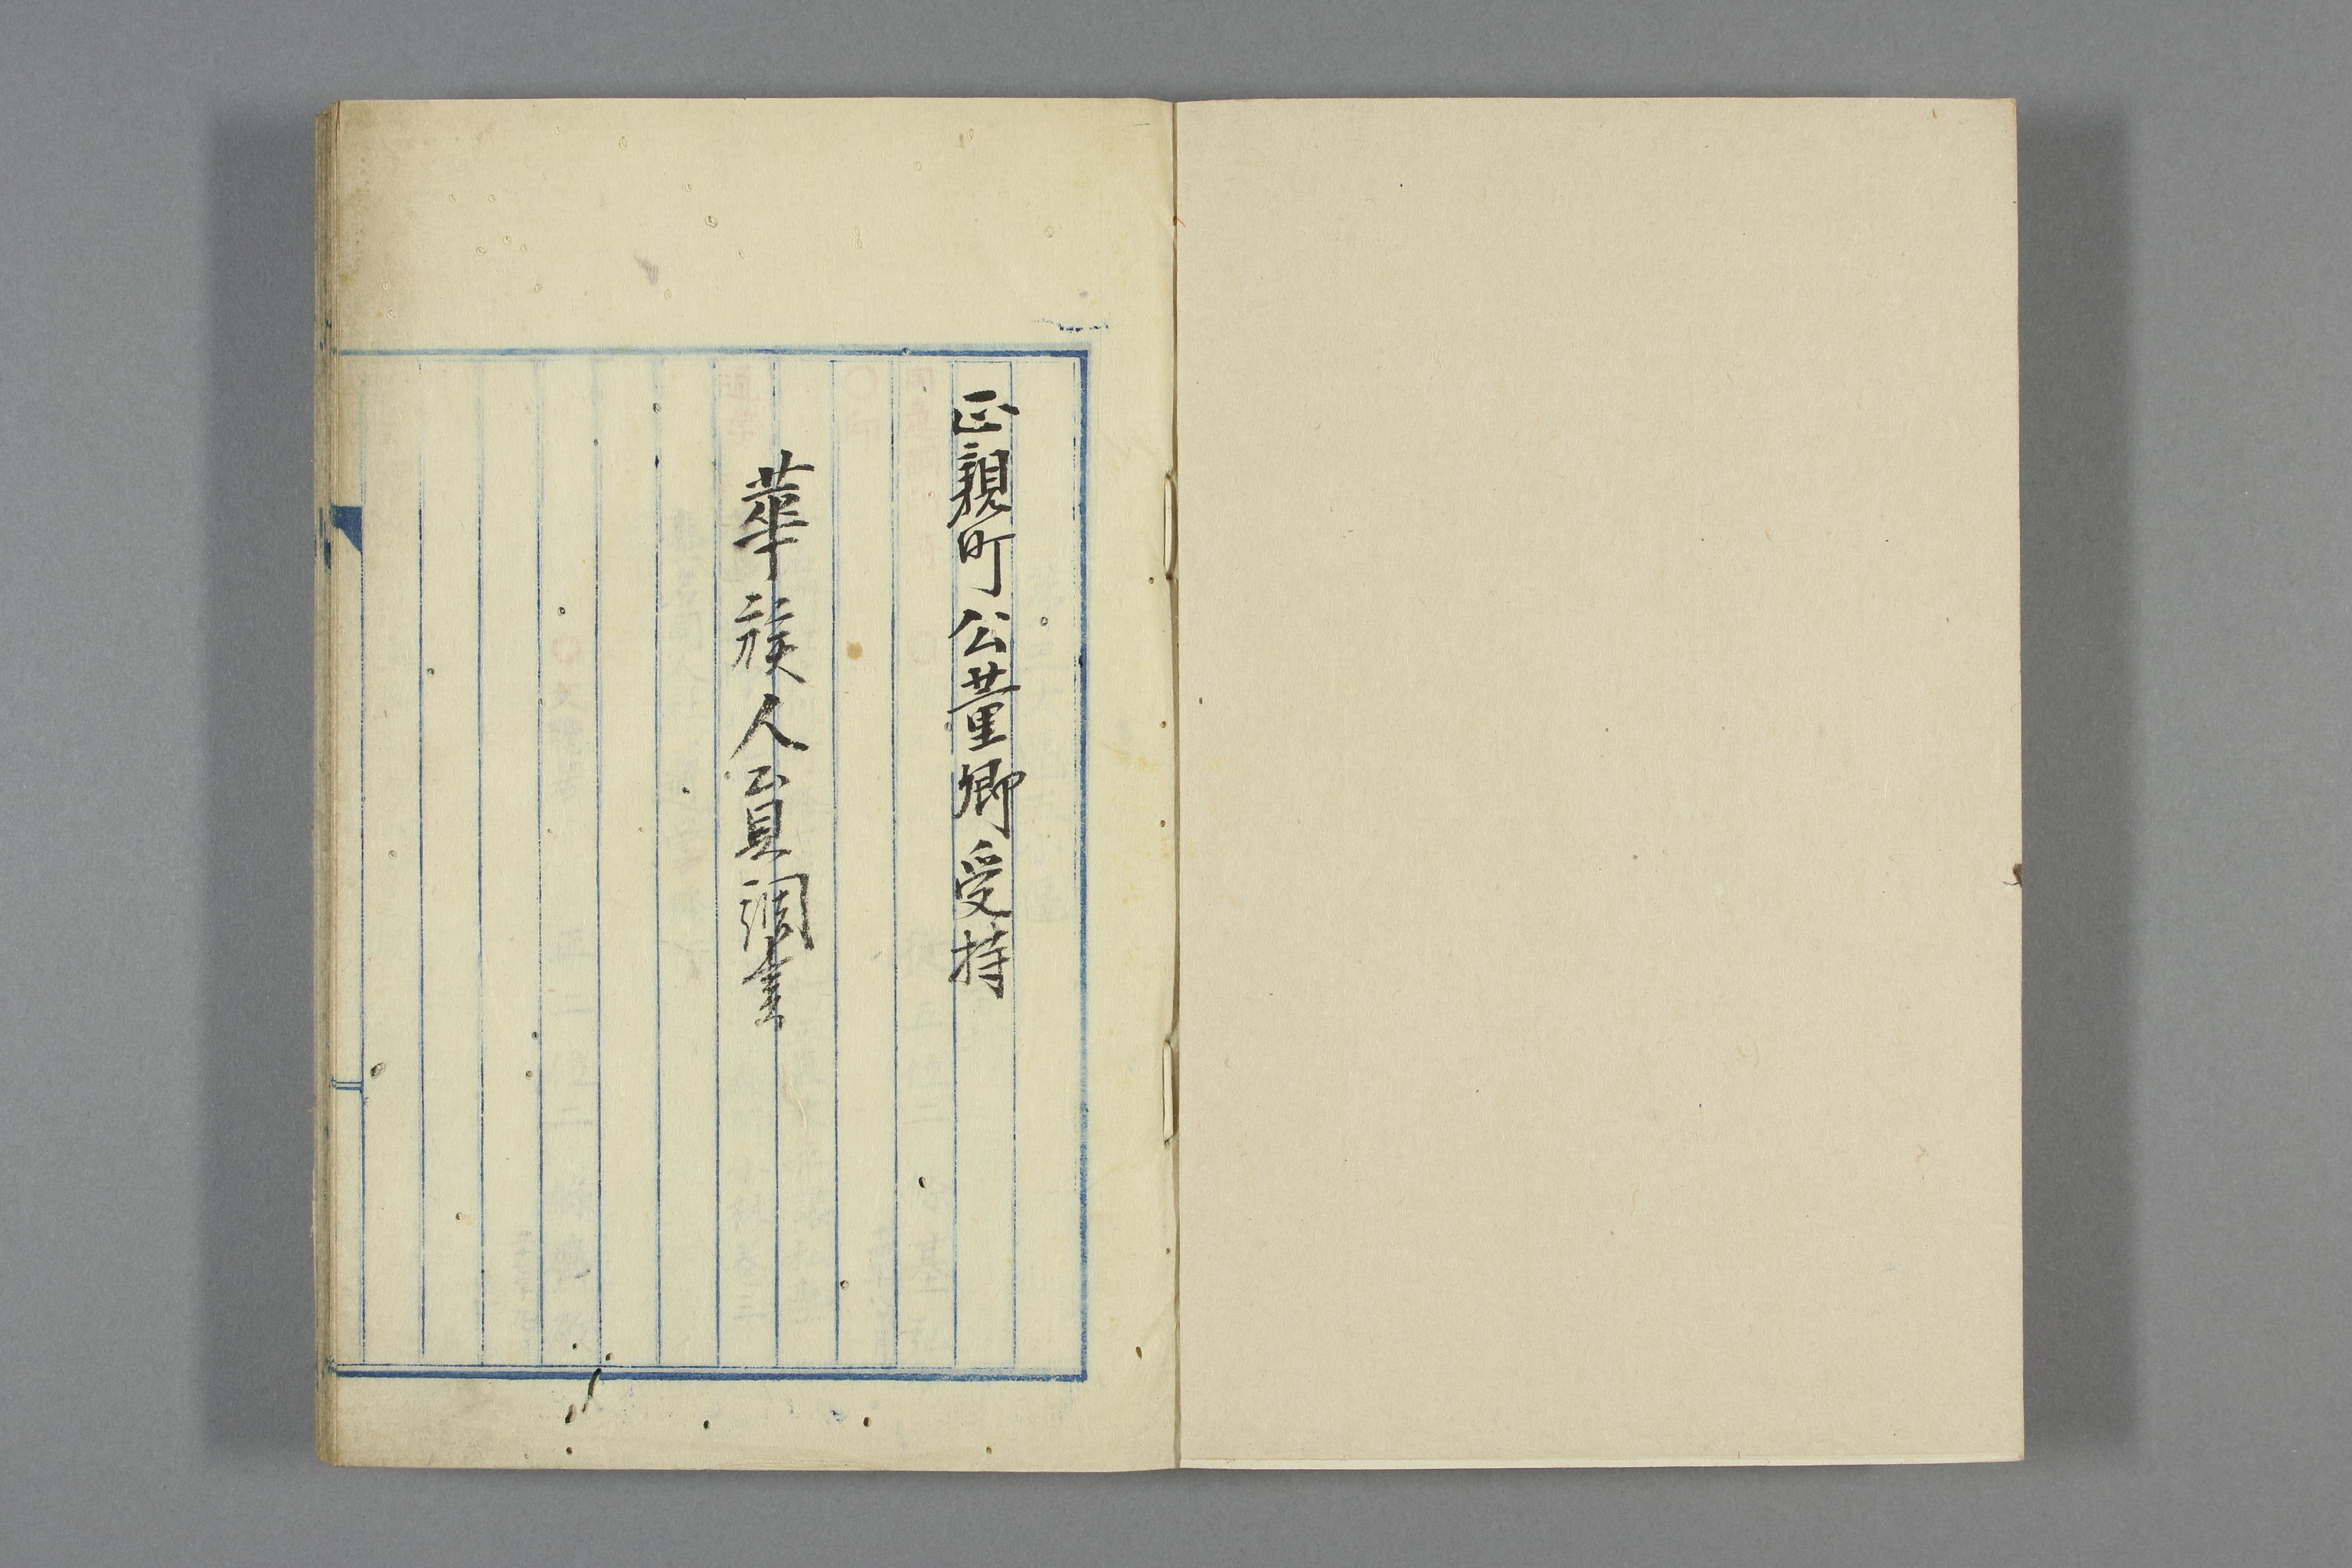 正親町公董卿受持
華族人員調書